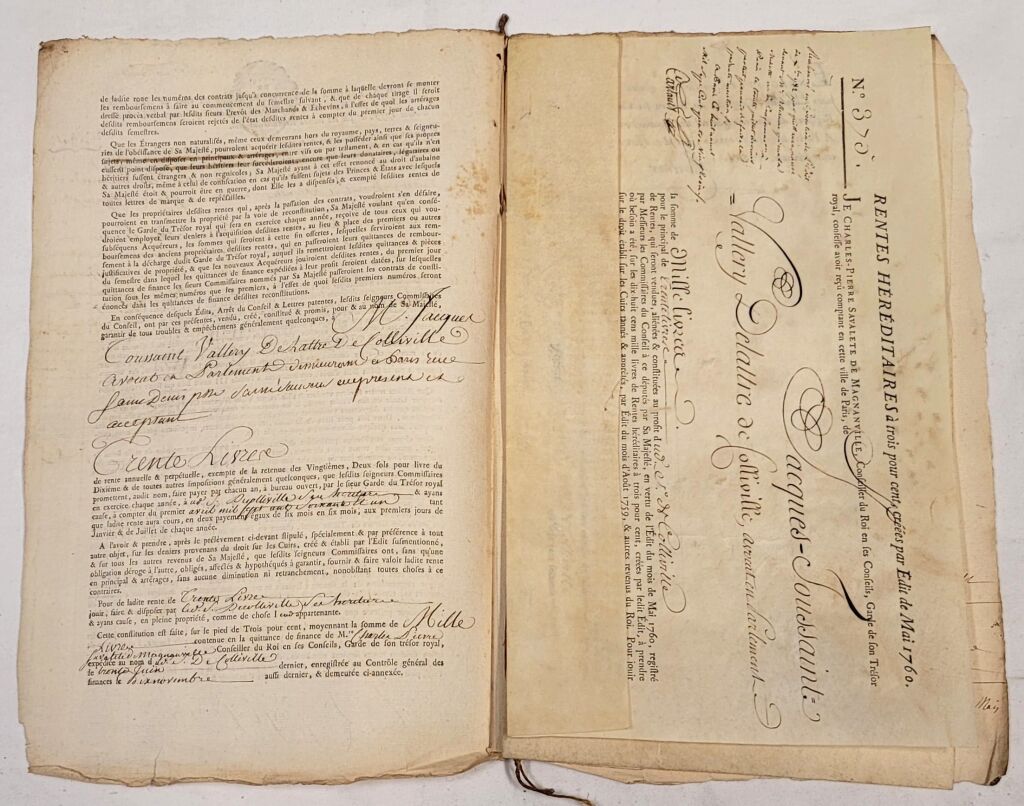 de ladite rone les numéros des contrats jusqu'à concurrence de la somme à laquelle devront se monter
les remboursemens à faire au commencement du semestre suivant, & que de chaque tirage il seroit
dressé procès verbal par lesdits sieurs Prevôt des Marchands & Echevins, à l'effet de quoi les arrérages
desdits remboursemens seroient rejetés de l'état desdites rentes à compter du premier jour de chacun
desdits semestres.
Que les Étrangers non naturalisés, même ceux demeurans hors du royaume, pays, terre & seigneu-
ries de l'obéissance de Sa Majesté, pourroient acquérir lesdites rentes, & les posséder ainsi que ses propres
sujets, même en disposer en principaux & arrérages, entre vifs ou par testament, & en cas qu'ils n'en
eussent point disposé, que leurs héritiers leur succéderoient, encore que leurs donataires, légataires ou
héritiers fussent étrangers & non regnicoles; Sa Majesté ayant à cet effet renoncé au droit d'aubaine
& autres droits, même à celui de confiscation en cas qu'ils fussent sujets des Princes & États avec lesquels
Sa Majesté étoit & pourroit être en guerre, dont Elle les a dispensés, & exempté lesdites rentes de
toutes lettres de marque & de représailles.
Que les propriétaires desdites rentes qui, après la passation des contrats, voudroient s'en défaire,
pourroient en transmettre la propriété par la voie de reconstitution, Sa Majesté voulant qu'en consé-
quence le Garde du Trésor royal qui sera en exercice chaque année, reçoive de tous ceux qui vou-
droient employer leurs deniers à l'acquisition desdites rentes, au lieu & place des premiers ou autres
subséquens Acquéreurs, les sommes qui seroient à cette fin offertes, lesquelles serviroient aux rem-
boursemens des anciens propriétaires desdites rentes, qui en passeroient leurs quittances de rembour-
sement à la décharge dudit Garde du Trésor royal, auquel ils remettroient lesdites quittances & pièces
justificatives de propriété, & que les nouveaux Acquéreurs jouiroient desdites rentes, du premier jour
du semestre dans lequel les quittances de finance expédiées à leur profit seroient datées, sur lesquelles
quittances de finance les sieurs Commissaires nommés par Sa Majesté passeroient les contrats de consti-
tution sous les mêmes numéros que les premiers, à l'effet de quoi lesdits premiers numéros, seront
énoncés dans les quittances de finance desdites reconstitutions.
En conséquence desquels Édits, Arrêt du Conseil & Lettres patentes, lesdits seigneurs Commissaires
du Conseil, ont par ces présentes, vendu, créé, constitué & promis, pour & au nom de Sa Majesté,
garantir de tous troubles & empêchemens généralement quelconques, à M. Jacques
Toussaint Vallery Delattre De Colliville
avocat en Parlement demeurant à Paris rue
Trente Livres
de rente annuelle & perpétuelle, exempte de la retenue des Vingtièmes, Deux sols pour livre du
Dixième & de toutes autres impositions généralement quelconques, que lesdits seigneurs Commissaires
promettent, audit nom, faire payer par chacun an, à bureau ouvert, par le sieur Garde du Trésor royal
en exercice chaque année, à & ayans
cause, à compter du premier avril mil sept cent soixante un tant
que ladite rente aura cours, en deux payemens égaux de six mois en six mois, aux premiers jours de
Janvier & de Juillet de chaque année.
A l'avoir & prendre, après le prélèvement ci-devant stipulé, spécialement & par préférence à tout
autre objet, sur les deniers provenans du droit sur les Cuirs, créé & établi par l'Édit susmentionné,
& sur tous les autres revenus de Sa Majesté, que lesdits seigneurs Commissaires ont, sans qu'une
obligation déroge à l'autre, obligés, affectés & hypothéqués à garantir, fournir & faire valoir ladite rente
en principal & arrérages, sans aucune diminution ni retranchement, nonobstant toutes choses à ce
contraires.
Pour de ladite rente de Trente Livres
jouir, faire & disposer par
& ayans cause, en pleine propriété, comme de chose leur appartenante.
Cette constitution est faite, sur le pied de Trois pour cent, moyennant la somme de Mille
Livres contenue en la quittance de finance de M.re Charles Pierre
Savalete de Magnanville Conseiller du Roi en ses Conseils, Garde de son trésor royal,
expédiée au nom dud. S. De Colliville
le trente Juin dernier, enregistrée au Contrôle général des
finances le dix novembre aussi dernier, & demeurée ci-annexée.
N.o 375.
RENTES HÉRÉDITAIRES à trois pour cent, créées par Édit de Mai 1760.
JE CHARLES-PIERRE SAVALETE DE MAGNANVILLE, Conseiller du Roi en ses Conseils, Garde de son Trésor
royal, confesse avoir reçu comptant en cette ville de Paris, de
Jacques-Toussaint=
=Vallery Delattre de Colliville, avocat en Parlement
la somme de Mille livres
pour le principal de trente livres
de Rentes, qui seront vendues, aliénées & constituées au profit dud. S.r de Colliville
par Messieurs les Commissaires du Conseil à ce députés par Sa Majesté, en vertu de l'Édit du mois de Mai 1760, registré
où besoin a été, sur les dix huit cent mille livres de Rentes héréditaires à trois pour cent, créées par ledit Édit, à prendre
sur le droit établi sur les Cuirs tannés & apprêtés, par Édit du mois d'Août 1759, & autres revenus du Roi. Pour jouir